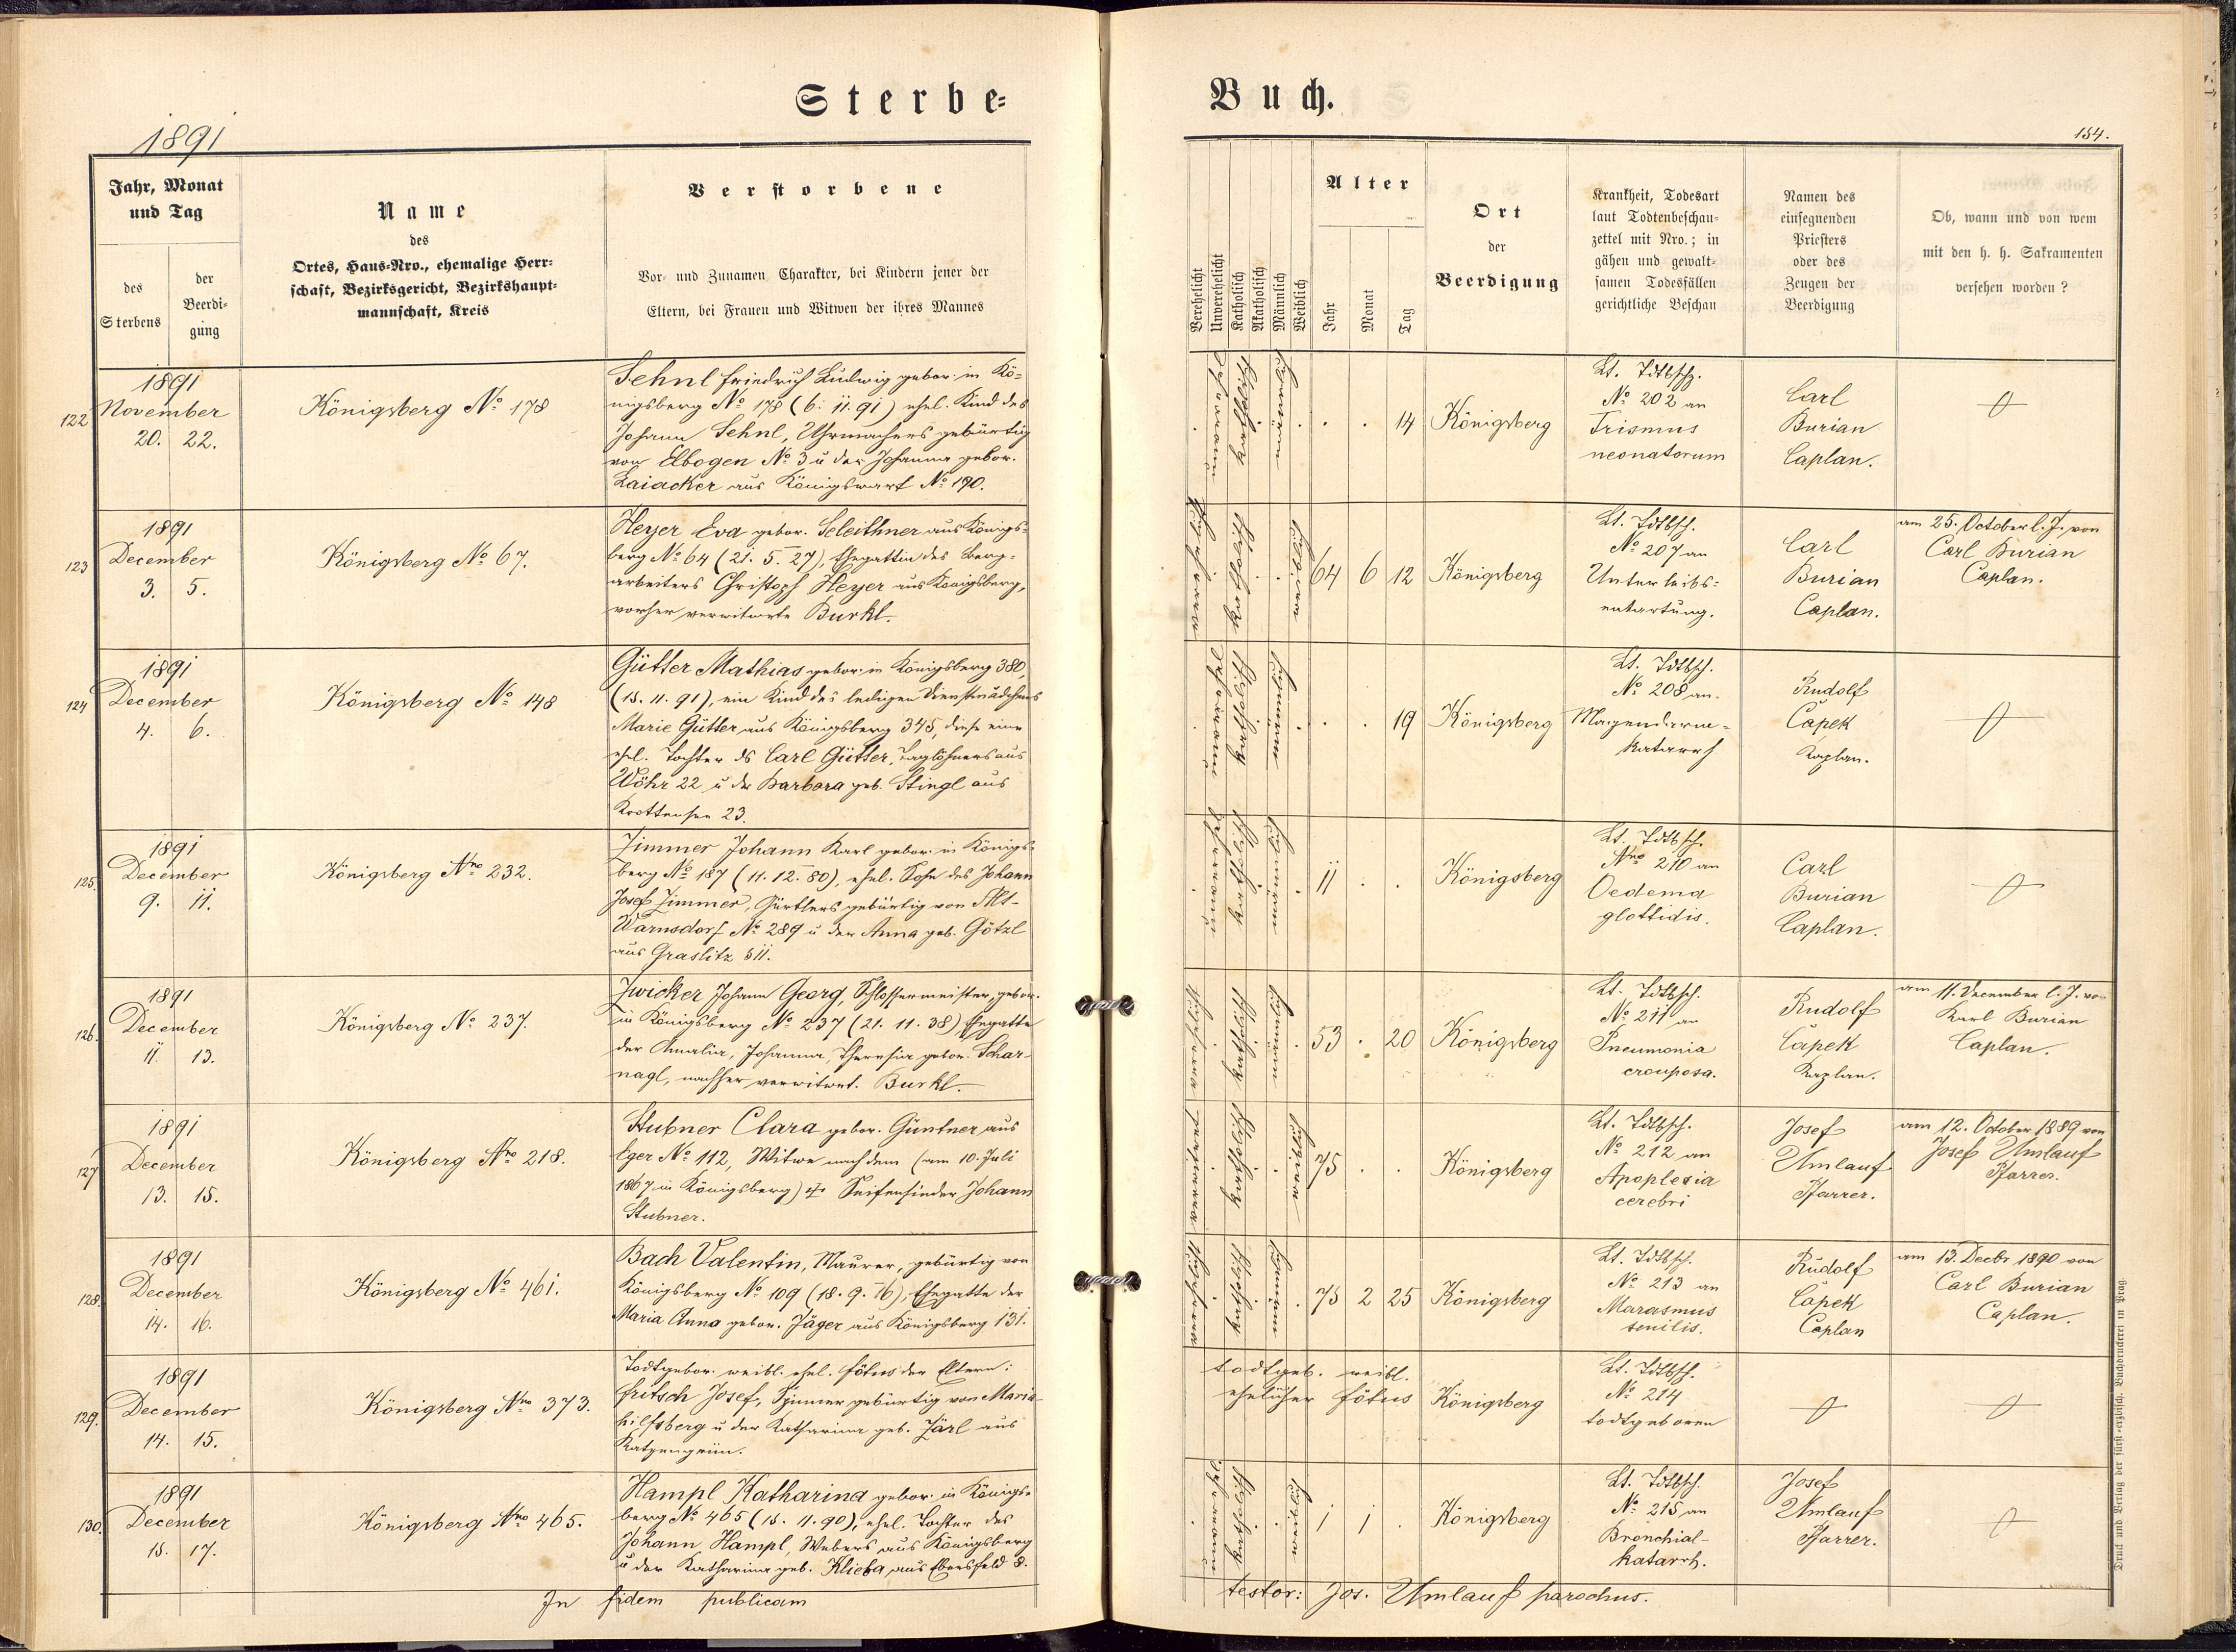 Sterbe-
1891
Jahr, Monat
und Tag
des
Sterbens
der
Beerdi-
gung
Name
des
Ortes, Haus-Nro., ehemalige Herr-
schaft, Bezirksgericht, Bezirkshaupt-
mannschaft, Kreis
Verstorbene
Vor- und Zunamen, Charakter, bei Kindern jener der
Eltern, bei Frauen und Witwen der ihres Mannes
122
1891
November
20. 22.
Königsberg No 178
Sehnl Friedrich Ludwig gebor. in Kö-
nigsberg No 178 (6. 11. 91) ehel. Kind des
Johann Sehnl, Uhrmachers gebürtig
von Elbogen No 3 u der Johanna gebor.
Zaiacker aus Königswart No 190.
123
1891
December
3. 5.
Königsberg No 67.
Heyer Eva gebor. Seleithner aus Königs-
berg No 64 (21. 5. 27), Ehegattin des Berg-
arbeiters Christoph Heyer aus Königsberg,
vorher verwitwete Burkl.
124
1891
December
4. 6.
Königsberg No 148
Gütter Mathias gebor. in Königsberg 380,
(15. 11. 91), ein Kind des ledigen Dienstmädchens
Marie Gütter aus Königsberg 345, diese eine
ehel. Tochter ds Carl Gütter, Taglöhners aus
Wöhr 22 u der Barbara geb. Stingl aus
Krottensee 23.
125.
1891
December
9. 11.
Königsberg Nro 232.
Zimmer Johann Karl gebor. in Königs-
berg No 187 (11. 12. 80), ehel. Sohn des Johann
Josef Zimmer, Gürtlers gebürtig von Alt-
Warnsdorf No 289 u der Anna geb. Götzl
aus Graslitz 511.
126.
1891
December
11. 13.
Königsberg No 237.
Zwicker Johann Georg, Schlossermeister, gebor.
in Königsberg No 237 (21. 11. 38) Ehegatte
der Amalia, Johanna, Theresia gebor. Schar-
nagl, nachher verwitwet. Burkl.
127
1891
December
13. 15.
Königsberg Nro 218.
Stubner Clara gebor. Güntner aus
Eger No 112, Witwe nach dem (am 10. Juli
1867 in Königsberg) † Seifensieder Johann
Stubner.
128.
1891
December
14. 16.
Königsberg No 461.
Bach Valentin, Maurer, gebürtig von
Königsberg No 109 (18. 9. 16), Ehegatte der
Maria Anna gebor. Jäger aus Königsberg 131.
129.
1891
December
14. 15.
Königsberg Nro 373.
Todtgebor. weibl. ehel. Fötus der Eltern:
Fritsch Josef, Spinner gebürtig von Maria-
hilfsberg u der Katharina geb. Järl aus
Katzengrün.
130.
1891
December
15. 17.
Königsberg Nro 465.
Hampl Katharina gebor. in Königs-
berg No 465 (15. 11. 90), ehel. Tochter des
Johann Hampl, Webers aus Königsberg
u der Katharina geb. Klieba aus Ebersfeld 8.
In fidem publicam
Buch.
154.
Verehelicht
Unverehelicht
Katholisch
Akatholisch
Männlich
Weiblich
Alter
Jahr
Monat
Tag
Ort
der
Beerdigung
Krankheit, Todesart
laut Todtenbeschau-
zettel mit Nro.; in
gähen und gewalt-
samen Todesfällen
gerichtliche Beschau
Namen des
einsegnenden
Priesters
oder des
Zeugen der
Beerdigung
Ob, wann und von wem
mit den h. h. Sakramenten
versehen worden?
katholisch
männlich
14
Königsberg
Lt. Tdtbschz.
No 202 an
Trismus
neonatorum
Carl
Burian
Caplan.
katholisch
weiblich
64 6 12
Königsberg
Lt. Tdtbsch.
No 207 an
Unterleibs-
entartung.
Carl
Burian
Caplan.
am 25. October l. J. von
Carl Burian
Caplan.
katholisch
männlich
19
Königsberg
Lt. Tdtbsch.
No 208 an
Magendarm-
katarrh
Rudolf
Čapek
Kaplan.
katholisch
männlich
11
Königsberg
Lt. Tdtbsch.
Nro 210 an
Oedema
glottidis.
Carl
Burian
Caplan.
katholisch
männlich
53 20
Königsberg
Lt. Tdtbsch.
No 211 an
Pneumonia
crouposa.
Rudolf
Čapek
Kaplan.
am 11. December l. J. von
Karl Burian
Caplan.
verwitwet
katholisch
weiblich
75
Königsberg
Lt. Tdtbsch.
No 212 an
Apoplexia
cerebri
Josef
Umlauf
Pfarrer.
am 12. October 1889 von
Josef Umlauf
Pfarrer.
katholisch
männlich
75 2 25
Königsberg
Lt. Tdtbsch.
No 213 an
Marasmus
senilis.
Rudolf
Čapek
Caplan
am 13. Decbr 1890 von
Carl Burian
Caplan.
todtgeb. weibl.
ehelicher Fötus
Königsberg
Lt. Tdtbsch.
No 214
todtgeboren
katholisch
weiblich
1 1
Königsberg
Lt. Tdtbsch.
No 215 an
Bronchial-
katarrh.
Josef
Umlauf
Pfarrer.
testor: Jos. Umlauf parochus.
Druck und Verlag der fürst-erzbisch. Buchdruckerei in Prag.